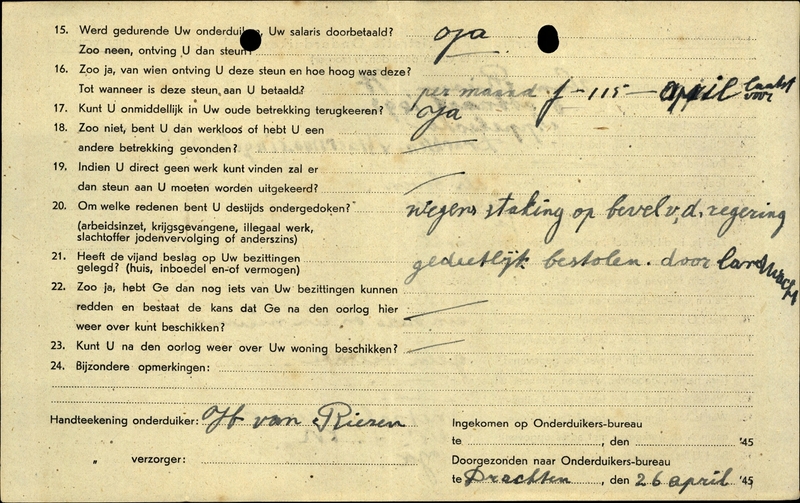 15. Werd gedurende Uw onderduiken, Uw salaris doorbetaald? oja
Zoo neen, ontving U dan steun?
16. Zoo ja, van wien ontving U deze steun en hoe hoog was deze?
Tot wanneer is deze steun aan U betaald? per maand f - 115 - april laatst voor
17. Kunt U onmiddellijk in Uw oude betrekking terugkeeren? oja
18. Zoo niet, bent U dan werkloos of hebt U een
andere betrekking gevonden?
19. Indien U direct geen werk kunt vinden zal er
dan steun aan U moeten worden uitgekeerd?
20. Om welke redenen bent U destijds ondergedoken? wegens staking op bevel v,d, regering
(arbeidsinzet, krijgsgevangene, illegaal werk,
slachtoffer jodenvervolging of anderszins)
21. Heeft de vijand beslag op Uw bezittingen
gelegd? (huis, inboedel en-of vermogen) gedeetlijk bestolen. door landwacht
22. Zoo ja, hebt Ge dan nog iets van Uw bezittingen kunnen
redden en bestaat de kans dat Ge na den oorlog hier
weer over kunt beschikken?
23. Kunt U na den oorlog weer over Uw woning beschikken?
24. Bijzondere opmerkingen:
Handteekening onderduiker: H van Riezen
„ verzorger:
Ingekomen op Onderduikers-bureau
te , den '45
Doorgezonden naar Onderduikers-bureau
te Drachten, den 26 april '45